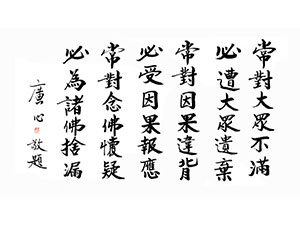 常對大眾不滿
必遭大眾遺棄
常對因果違背
必受因果報應
常對念佛懷疑
必為諸佛捨漏
廣心敬題